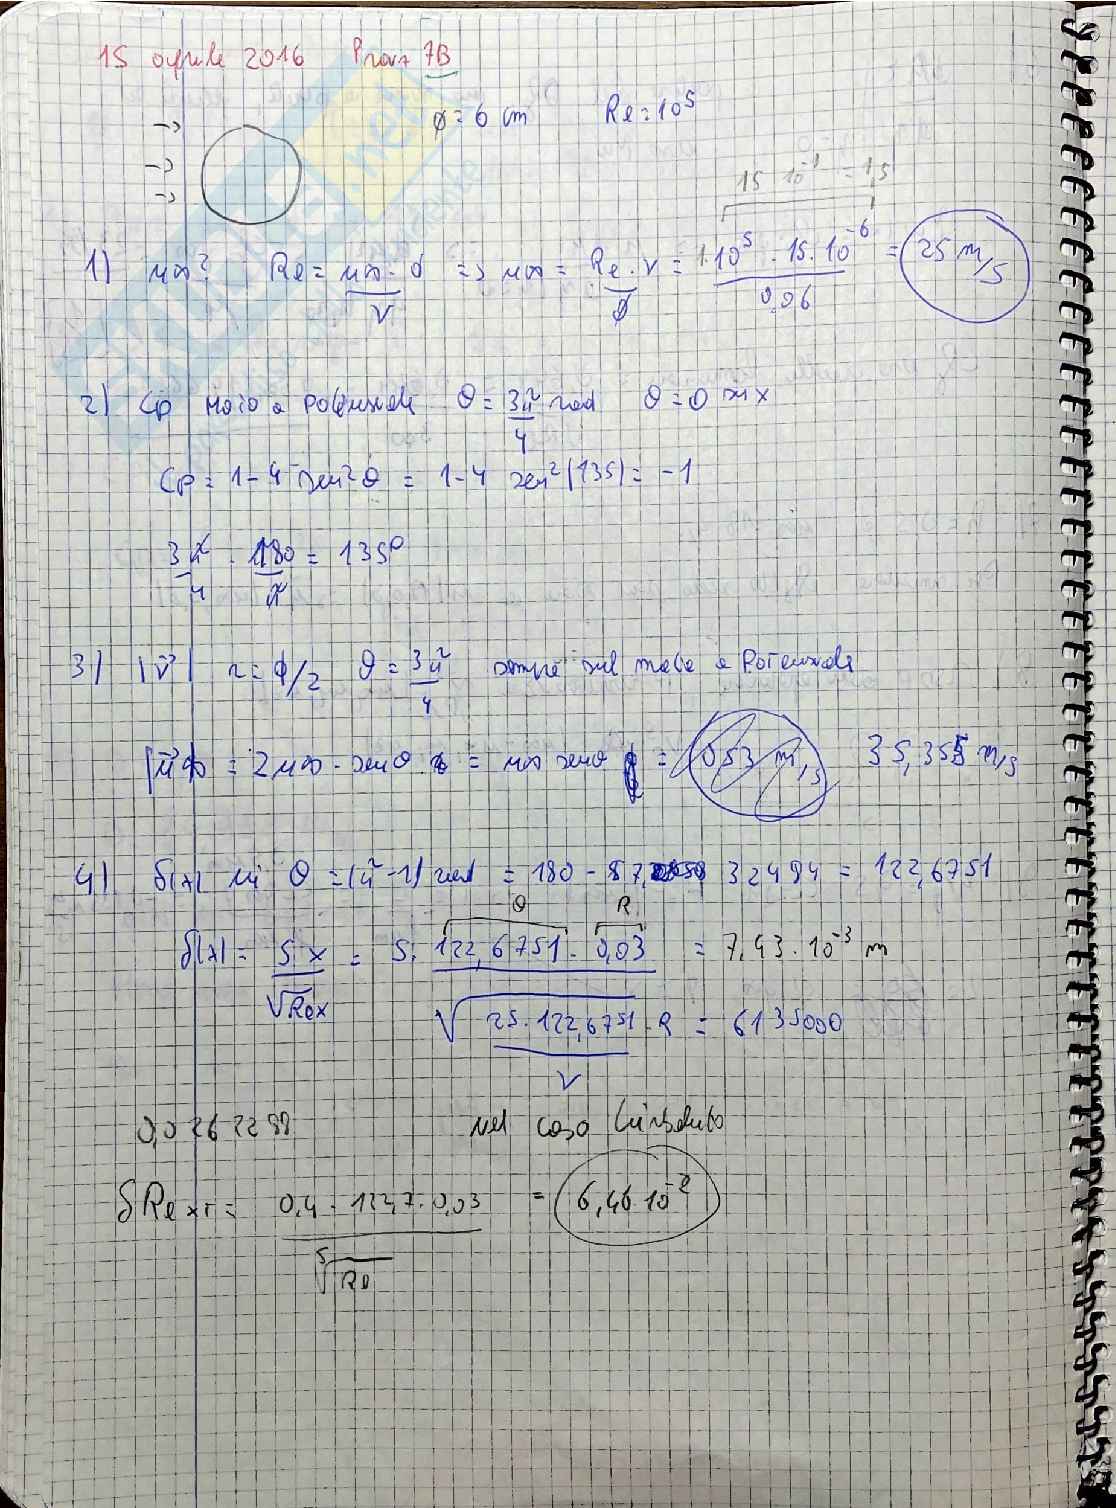 15 aprile 2016 Prova 7B
φ = 6 cm Re = 10^5
15 · 10^-1 = 1,5
1) u∞? Re = u∞ · d / ν => u∞ = Re · ν / φ = 1 · 10^5 · 15 · 10^-6 / 0,06 = 25 m/s
2) Cp moto a potenziale θ = 3π/4 rad θ = 0 sx
Cp = 1 - 4 sen²θ = 1 - 4 sen²(135) = -1
3π/4 · 180/π = 135°
3) |v⃗| r = φ/2 θ = 3π/4 sempre sul moto a potenziale
= 2 u∞ · senθ = u∞ senθ = 35,355 m/s
4) δ(x) in θ = (π - 1) rad = 180 - 57, 32494 = 122,6751
θ R
δ(x) = 5 · x / √Rex = 5 · 122,6751 · 0,03 = 7,43 · 10^-3 m
√ 25 · 122,6751 · R / ν = 6135000
nel caso turbolento
= 0,03 / ⁵√Re = 6,46 · 10^-2